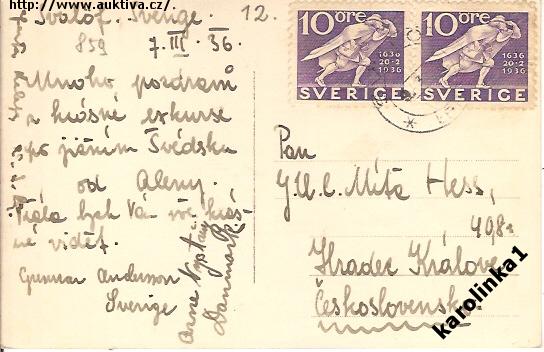 http://www.auktiva.cz/
Svalöf. Sverige. 12.
859 7. III. 36.
Mnoho pozdravů
z krásné exkurse
po jižním Švédsku
od Aleny.
Ráda bych Vám vše krás-
né viděl.
Gunnar Andersson
Sverige
Arne Nystrøm
Danmark
10 ÖRE
1636
20-2
1936
SVERIGE
10 ÖRE
1636
20-2
1936
SVERIGE
Pan
J.U.C. Míťa Hess,
498
Hradec Králové
Československo
karolinka1